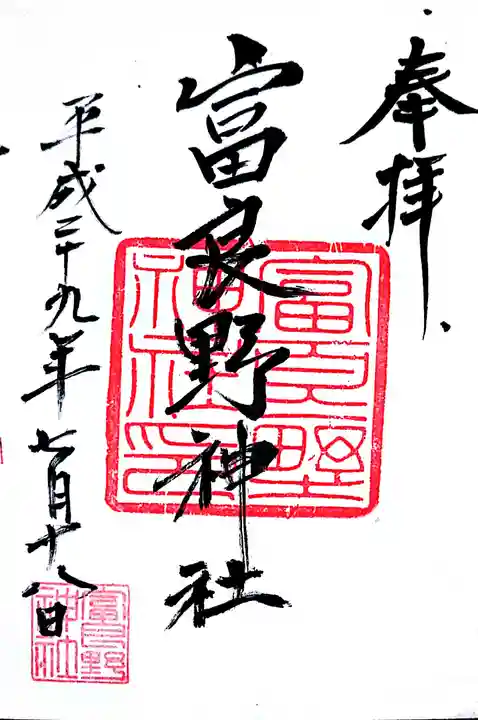 奉拝
富良野神社
富良野神社印
平成二十九年七月十八日
富良野神社